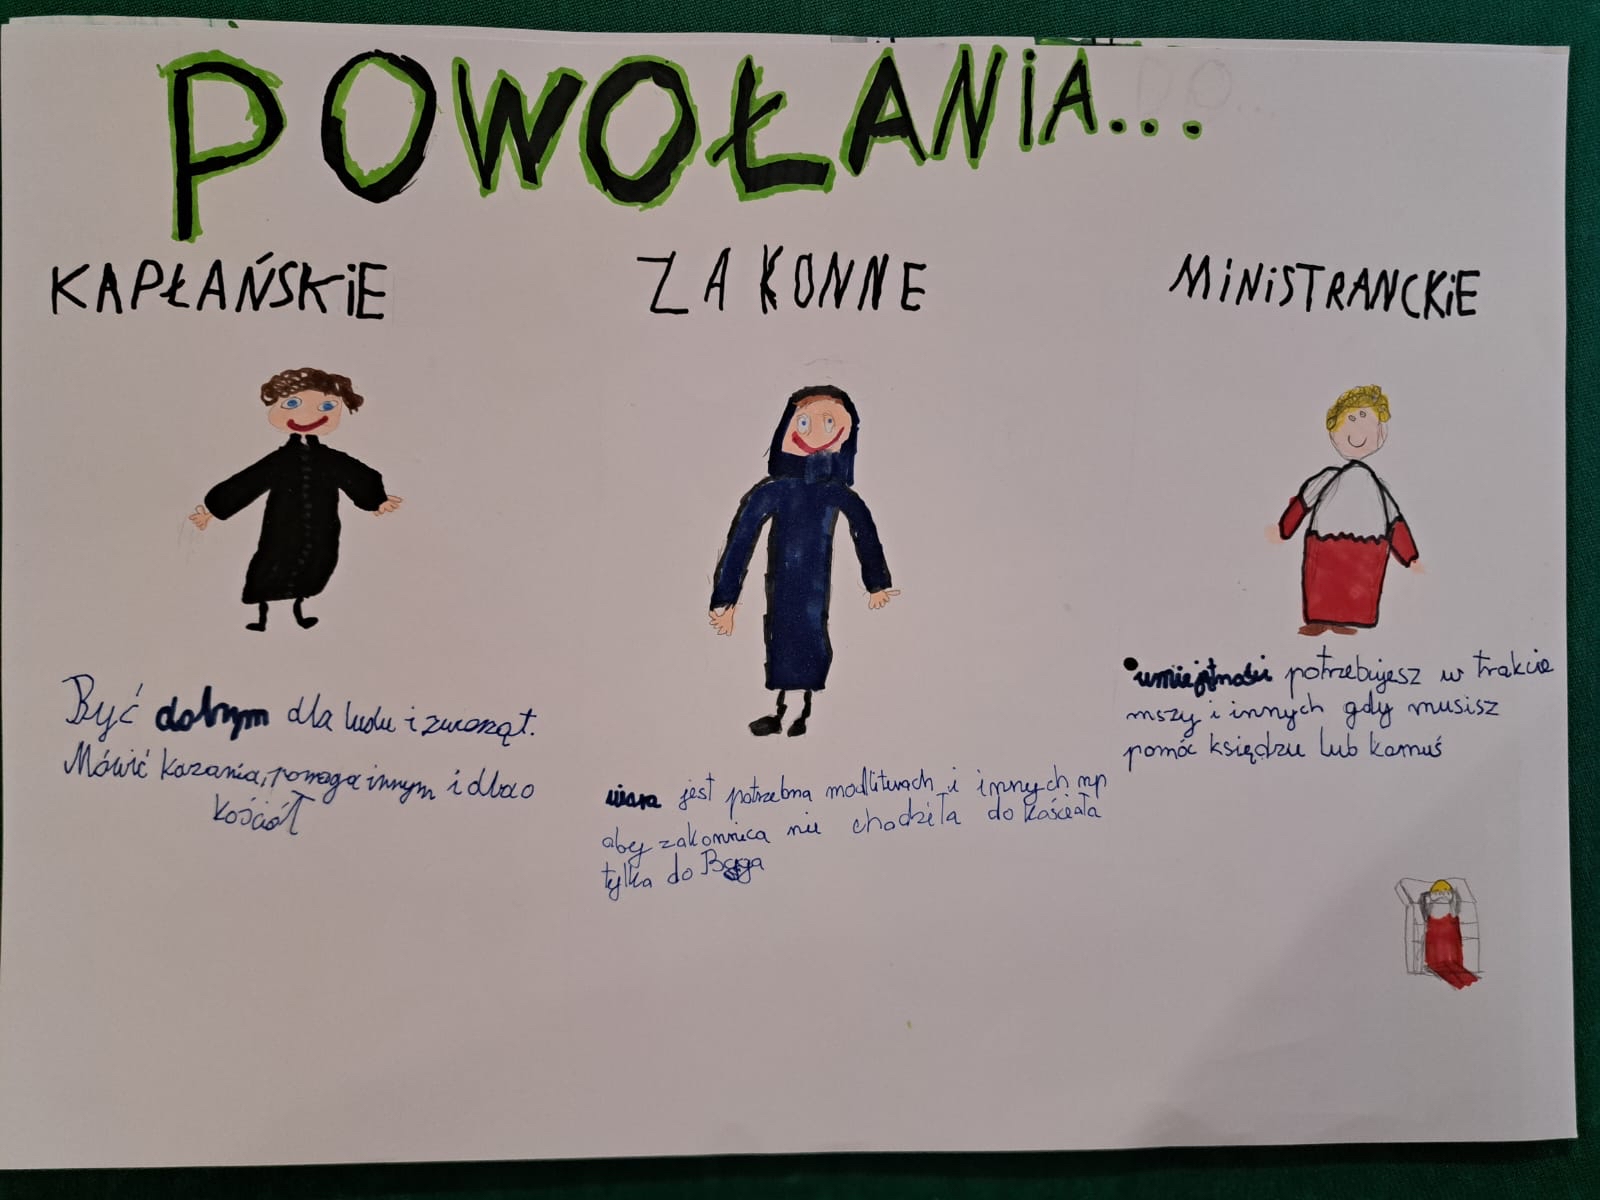 POWOŁANIA...
KAPŁAŃSKIE
ZAKONNE
MINISTRANCKIE
Być dobrym dla ludu i zwierząt.
Mówić kazania, pomaga innym i dbao
kościół
wiara jest potrzebna modlitwach i innych np
aby zakonnica nie chodziła do kościoła
tylko do Boga
umiejętności potrzebujesz w trakcie
mszy i innych gdy musisz
pomóc księdzu lub komuś